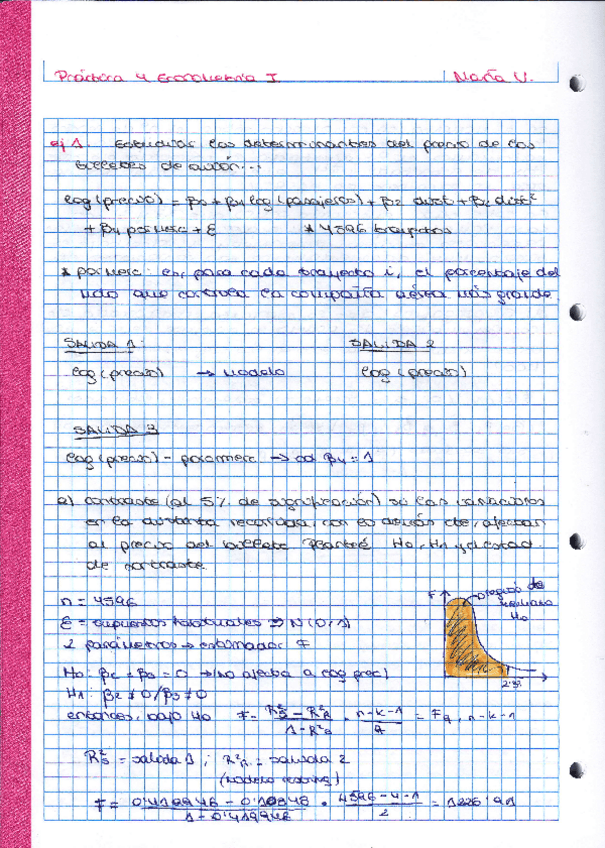 Práctica 4 Econometría I. María V.
ej 1. Estudiar los determinantes del precio de los
billetes de avión...
log(precio) = β0 + β1 log(pasajeros) + β2 dist + β2 dist²
+ β4 pormerc + ε * 4596 trayectos
* pormerc: es, para cada trayecto i, el porcentaje del
mdo que controla la compañía aérea más grande.
SALIDA 1: SALIDA 2
log(precio) → modelo log(precio)
SALIDA 3
log(precio) - pormerc → cd β4 = 1
a) contraste (al 5% de significación) si las variaciones
en la distancia recorrida, con lo demás cte, afectan
al precio del billete. Planteé H0, H1 y el estad.
de contraste.
n = 4596
ε = supuestos habituales ⇒ N(0,1)
2 parámetros → estimador F
H0: β2 = β3 = 0 → (no afecta a log prec)
H1: β2 ≠ 0 / β3 ≠ 0
entonces, bajo H0 F =
R²s = salida 1 ; = salida 2
F = 0'419946 - 0'10848 / 1 - 0'419946 · 4596 - 4 - 1 / 2 = 1226'91